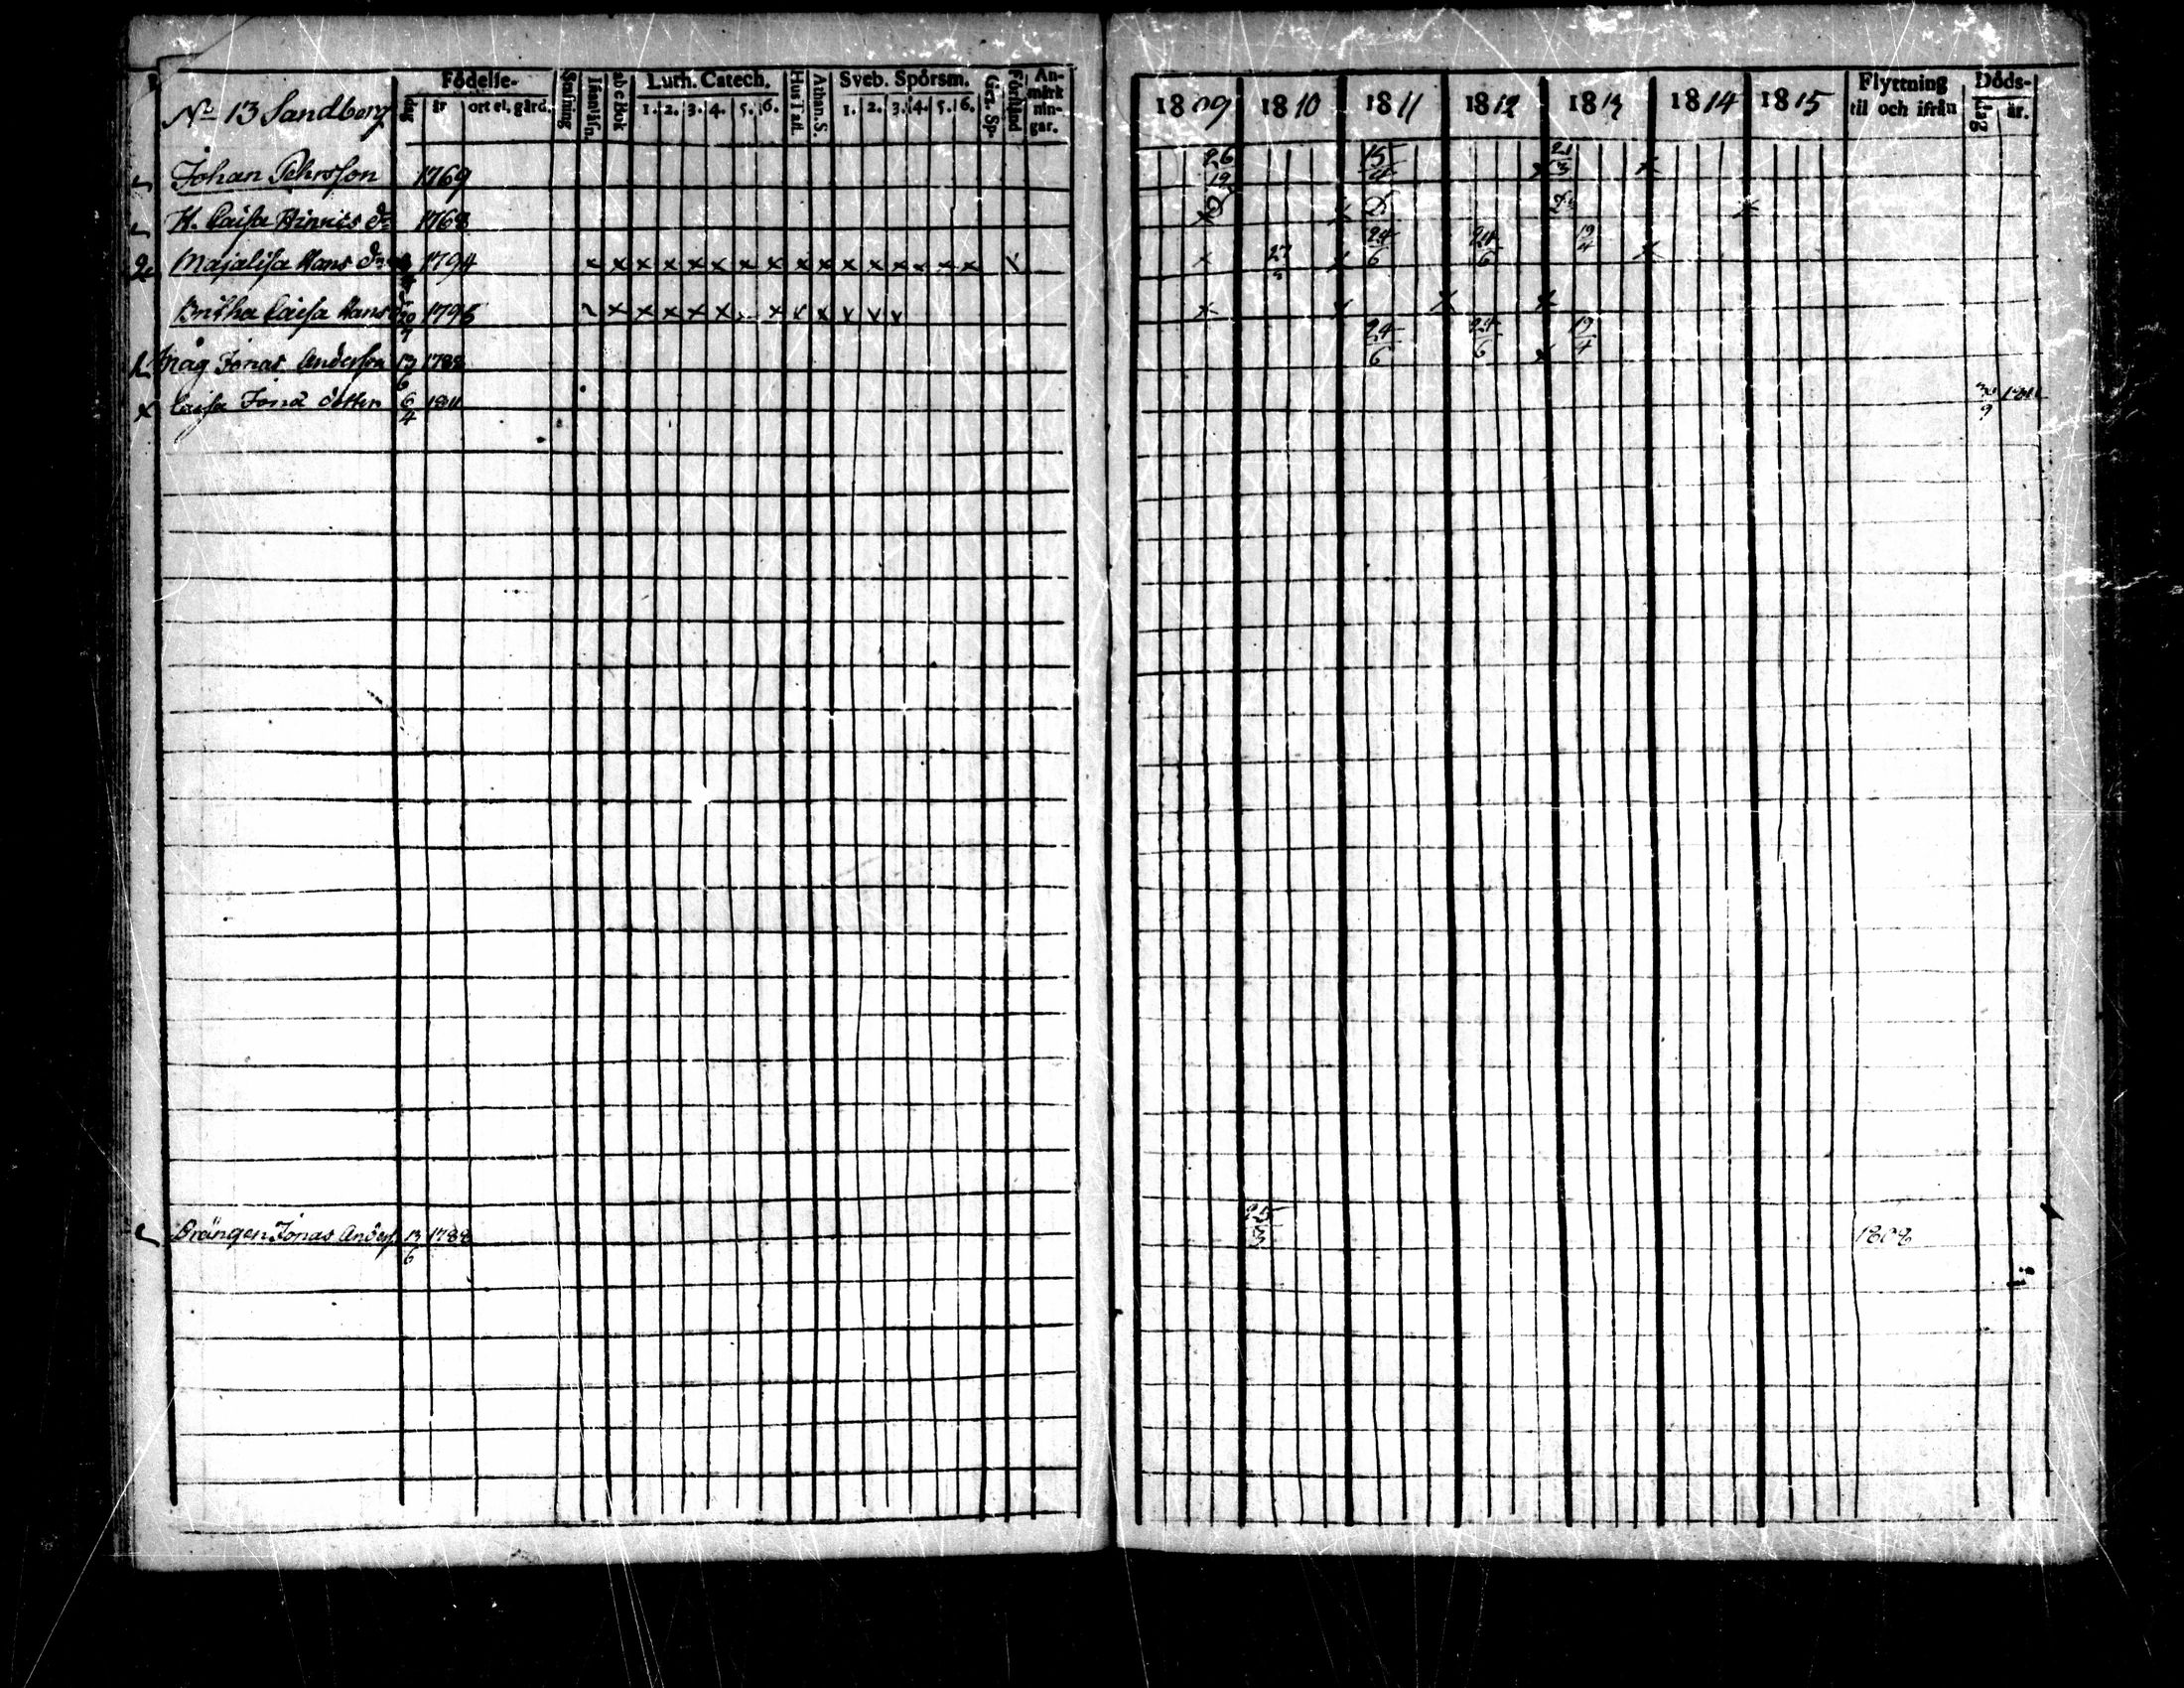 Födelse- Luth. Catech. Sveb. Spörsm. An-märk-nin-gar.
No 13 Sandberg dag år ort el. gård. abc Bok 1. 2. 3. 4. 5. 6. Hus Tafl. Athan. S. 1. 2. 3. 4. 5. 6. Förstånd
1809 1810 1811 1812 1813 1814 1815 Flyttning til och ifrån Döds- dag år.
Johan Pehrsson 1769 26/12 15/4 x 21/3 x
H. Caisa 1768 x D x D D x
2 Majalisa Hans dr 1794 x x x x x x x x x x x x x x x x x 27/5 x 24/6 24/6 19/4 x
Britha Caisa Hans dr 20/9 1795 x x x x x x x x v v v x x x x
Måg Jonas Andersson 13/6 1788 24/6 24/6 x 19/4
x Caisa Jona dotter 6/4 1811 30/9 1811
Drängen Jonas Anders. 13/6 1788 25/3 1808